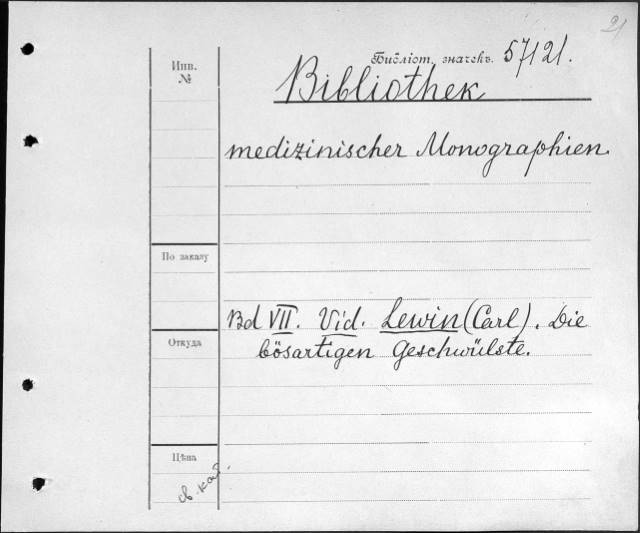 21
Библіот. значекъ. 57121.
Инв.
№
Bibliothek
medizinischer Monographien.
По заказу
Bd VII. Vid. Lewin (Carl). Die
bösartigen Geschwülste.
Откуда
Цѣна